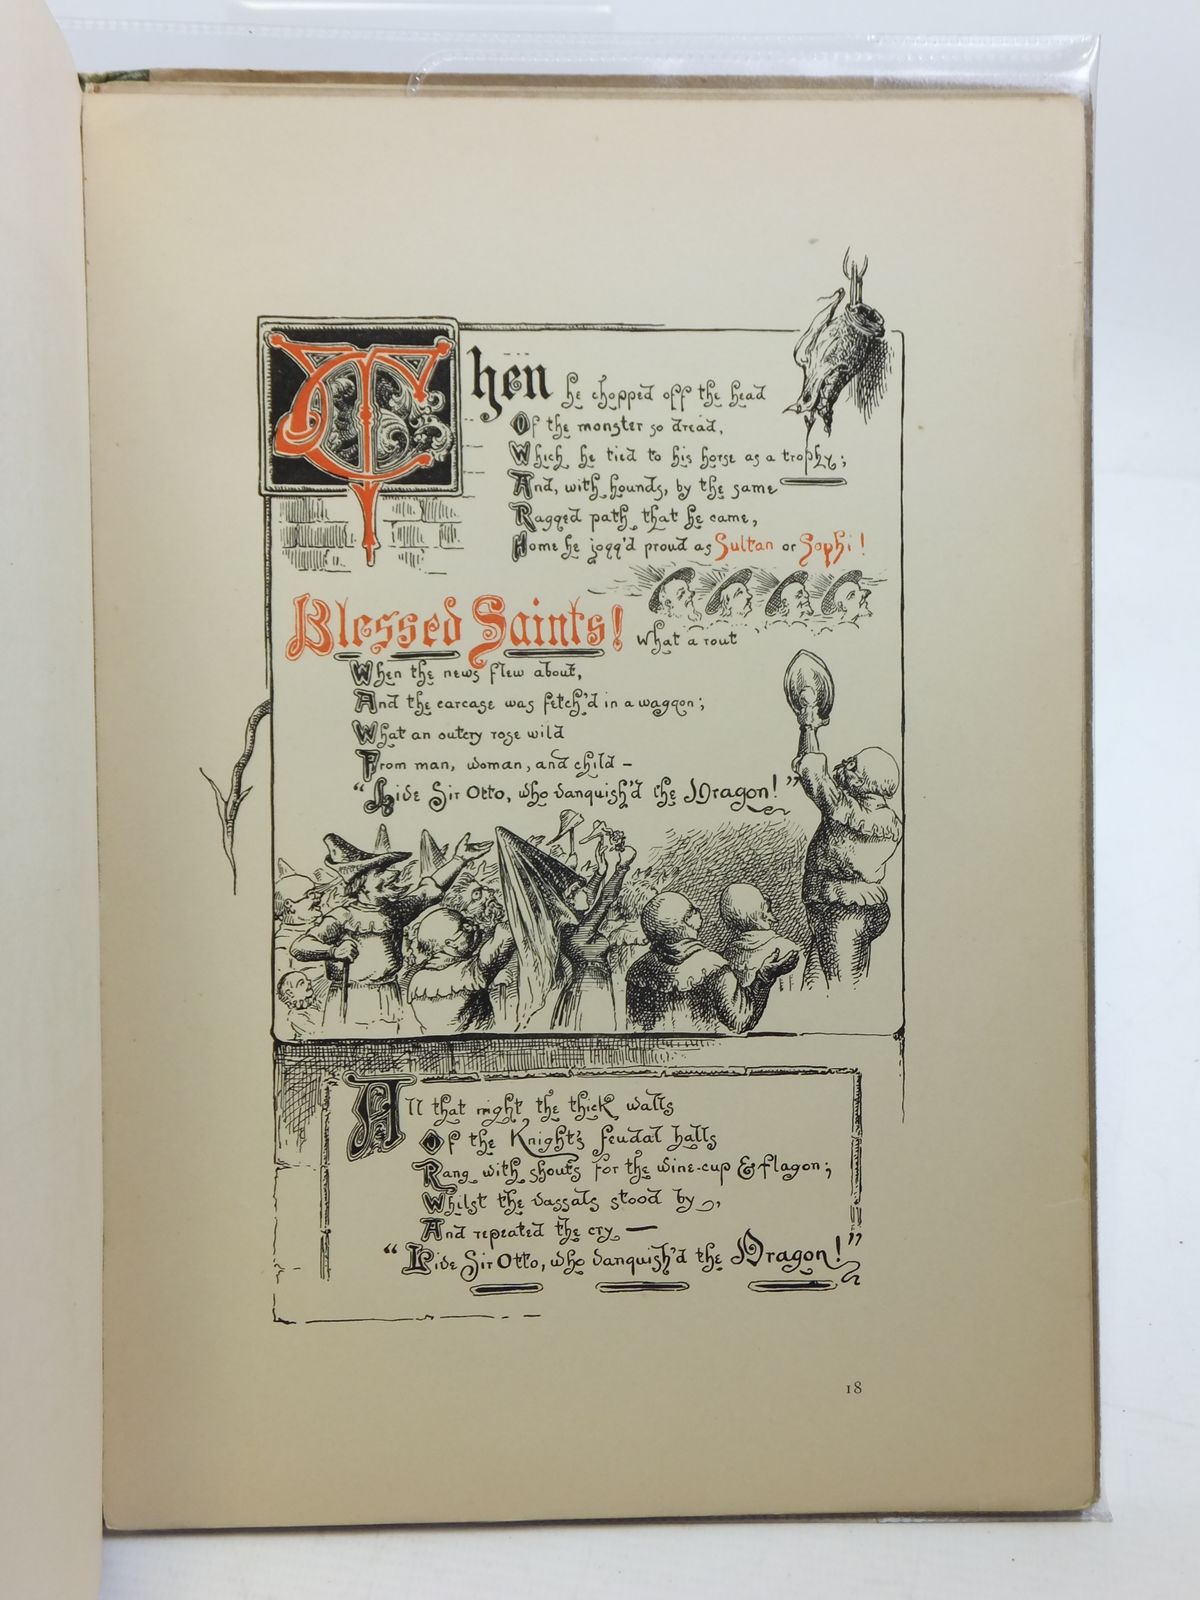 Then he chopped off the head
Of the monster so dread,
Which he tied to his horse as a trophy;
And, with hounds, by the same
Ragged path that he came,
Home he jogg'd proud as Sultan or Sophi!
Blessed Saints! What a rout
When the news flew about,
And the carcase was fetch'd in a waggon;
What an outcry rose wild
From man, woman, and child —
"Live Sir Otto, who vanquish'd the Dragon!"
All that night the thick walls
Of the Knight's feudal halls
Rang with shouts for the wine-cup & flagon;
Whilst the vassals stood by,
And repeated the cry —
"Live Sir Otto, who vanquish'd the Dragon!"
18